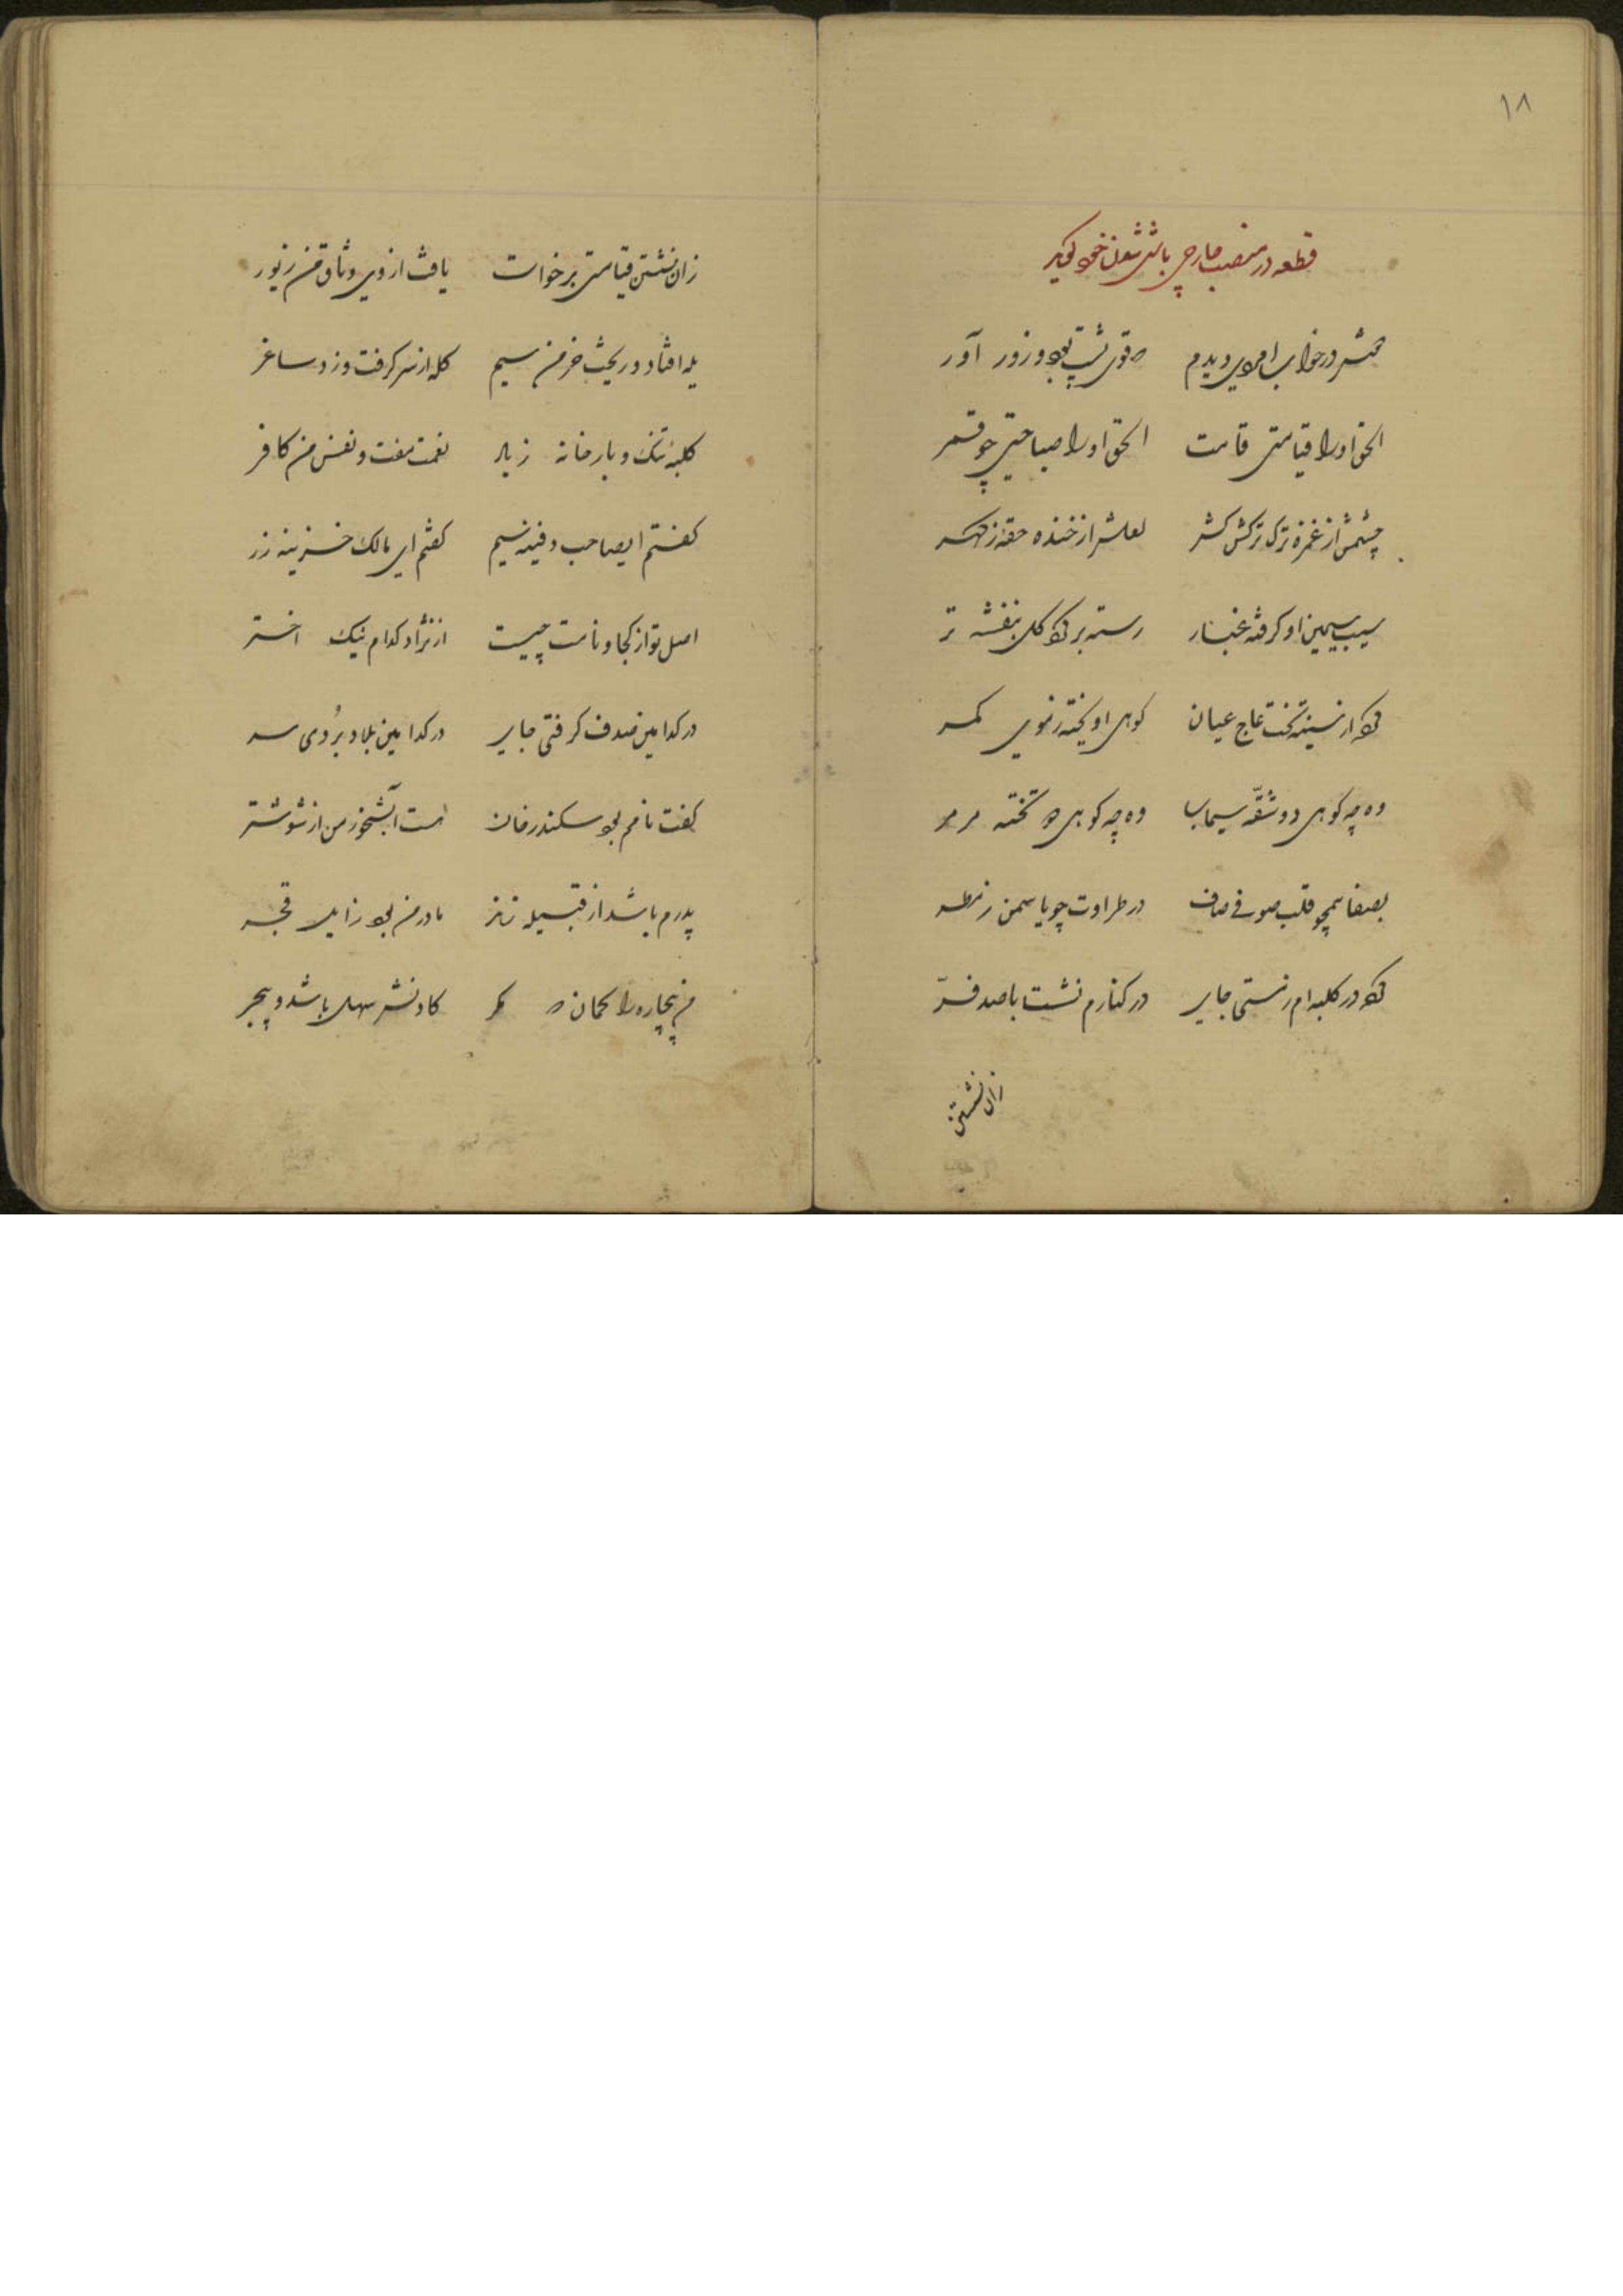 ۱۸
قطعه در منصب جارچی باشی شدن خود گوید
در خواب امردی دیدم که قوی پشت بود و زور آور
الحق او را قیامتی قامت الحق او را صباحتی چو قمر
چشمش از غمزه ترک ترکش کش لعلش از خنده حقه ز گهر
سیب سیمین او گرفته غبار رسته بر گرد گل بنفشه تر
کرد از سینه تخت عاج عیان کوهی اویخته ز موی کمر
وه چه کوهی دو شقّه سیماب وه چه کوهی دو تخته مرمر
بصفا همچو قلب صوفی صاف در طراوت چو یاسمن ز مطر
کرد در کلبه ام ز مستی جای در کنارم نشست با صد فرّ
زان نشستن
زان نشستن قیامتی برخواست یافت از وی وثاق من زیور
یله افتاد و ریخت خرمن سیم کله از سر گرفت و زد ساغر
کلبه تنک و بارخانه زیاد نعمت مفت و نفس من کافر
گفتم ایصاحب دفینه سیم گفتم ای مالک خزینه زر
اصل تو از کجا و نامت چیست از نژاد کدام نیک اختر
در کدامین صدف گرفتی جای در کدامین بلاد بُردی سر
گفت نامم بود سکندرخان هست آبشخور من از شوشتر
پدرم باشد از قبیله مادر من بود ز ایل قجر
من بیچاره را گمان که مگر کادنش سهل باشد و بیجر